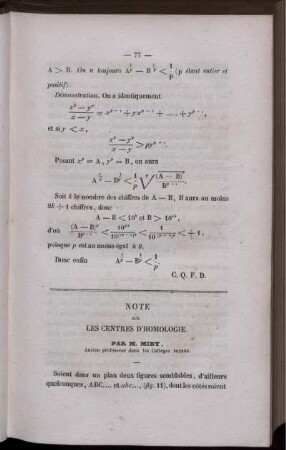 — 77 —
A > B. On a toujours A^{1/p} — B^{1/p} < 1/p (p étant entier et
positif).
Démonstration. On a identiquement
(x^p — y^p)/(x — y) = x^{p-1} + yx^{p-2} + ..... + y^{p-1},
et si y < x,
(x^p — y^p)/(x — y) > py^{p-1}.
Posant x^p = A, y^p = B, on aura
A^{1/p} — B^{1/p} < 1/p \sqrt[p]{(A — B)^p/B^{p-1}}.
Soit k le nombre des chiffres de A — B, B aura au moins
2k + 1 chiffres, donc
A — B < 10^k et B > 10^{2k},
d'où (A — B)^p/B^{p-1} < 10^{pk}/10^{2k(p-1)} < 1/10^{k(p-2)} < + 1,
puisque p est au moins égal à 2.
Donc enfin A^{1/p} — B^{1/p} < 1/p.
C. Q. F. D.
NOTE
SUR
LES CENTRES D'HOMOLOGIE.
PAR M. MIDY,
Ancien professeur dans les Colléges royaux.
Soient dans un plan deux figures semblables, d'ailleurs
quelconques, ABC.... et abc..., (fig. 11), dont les côtés soient